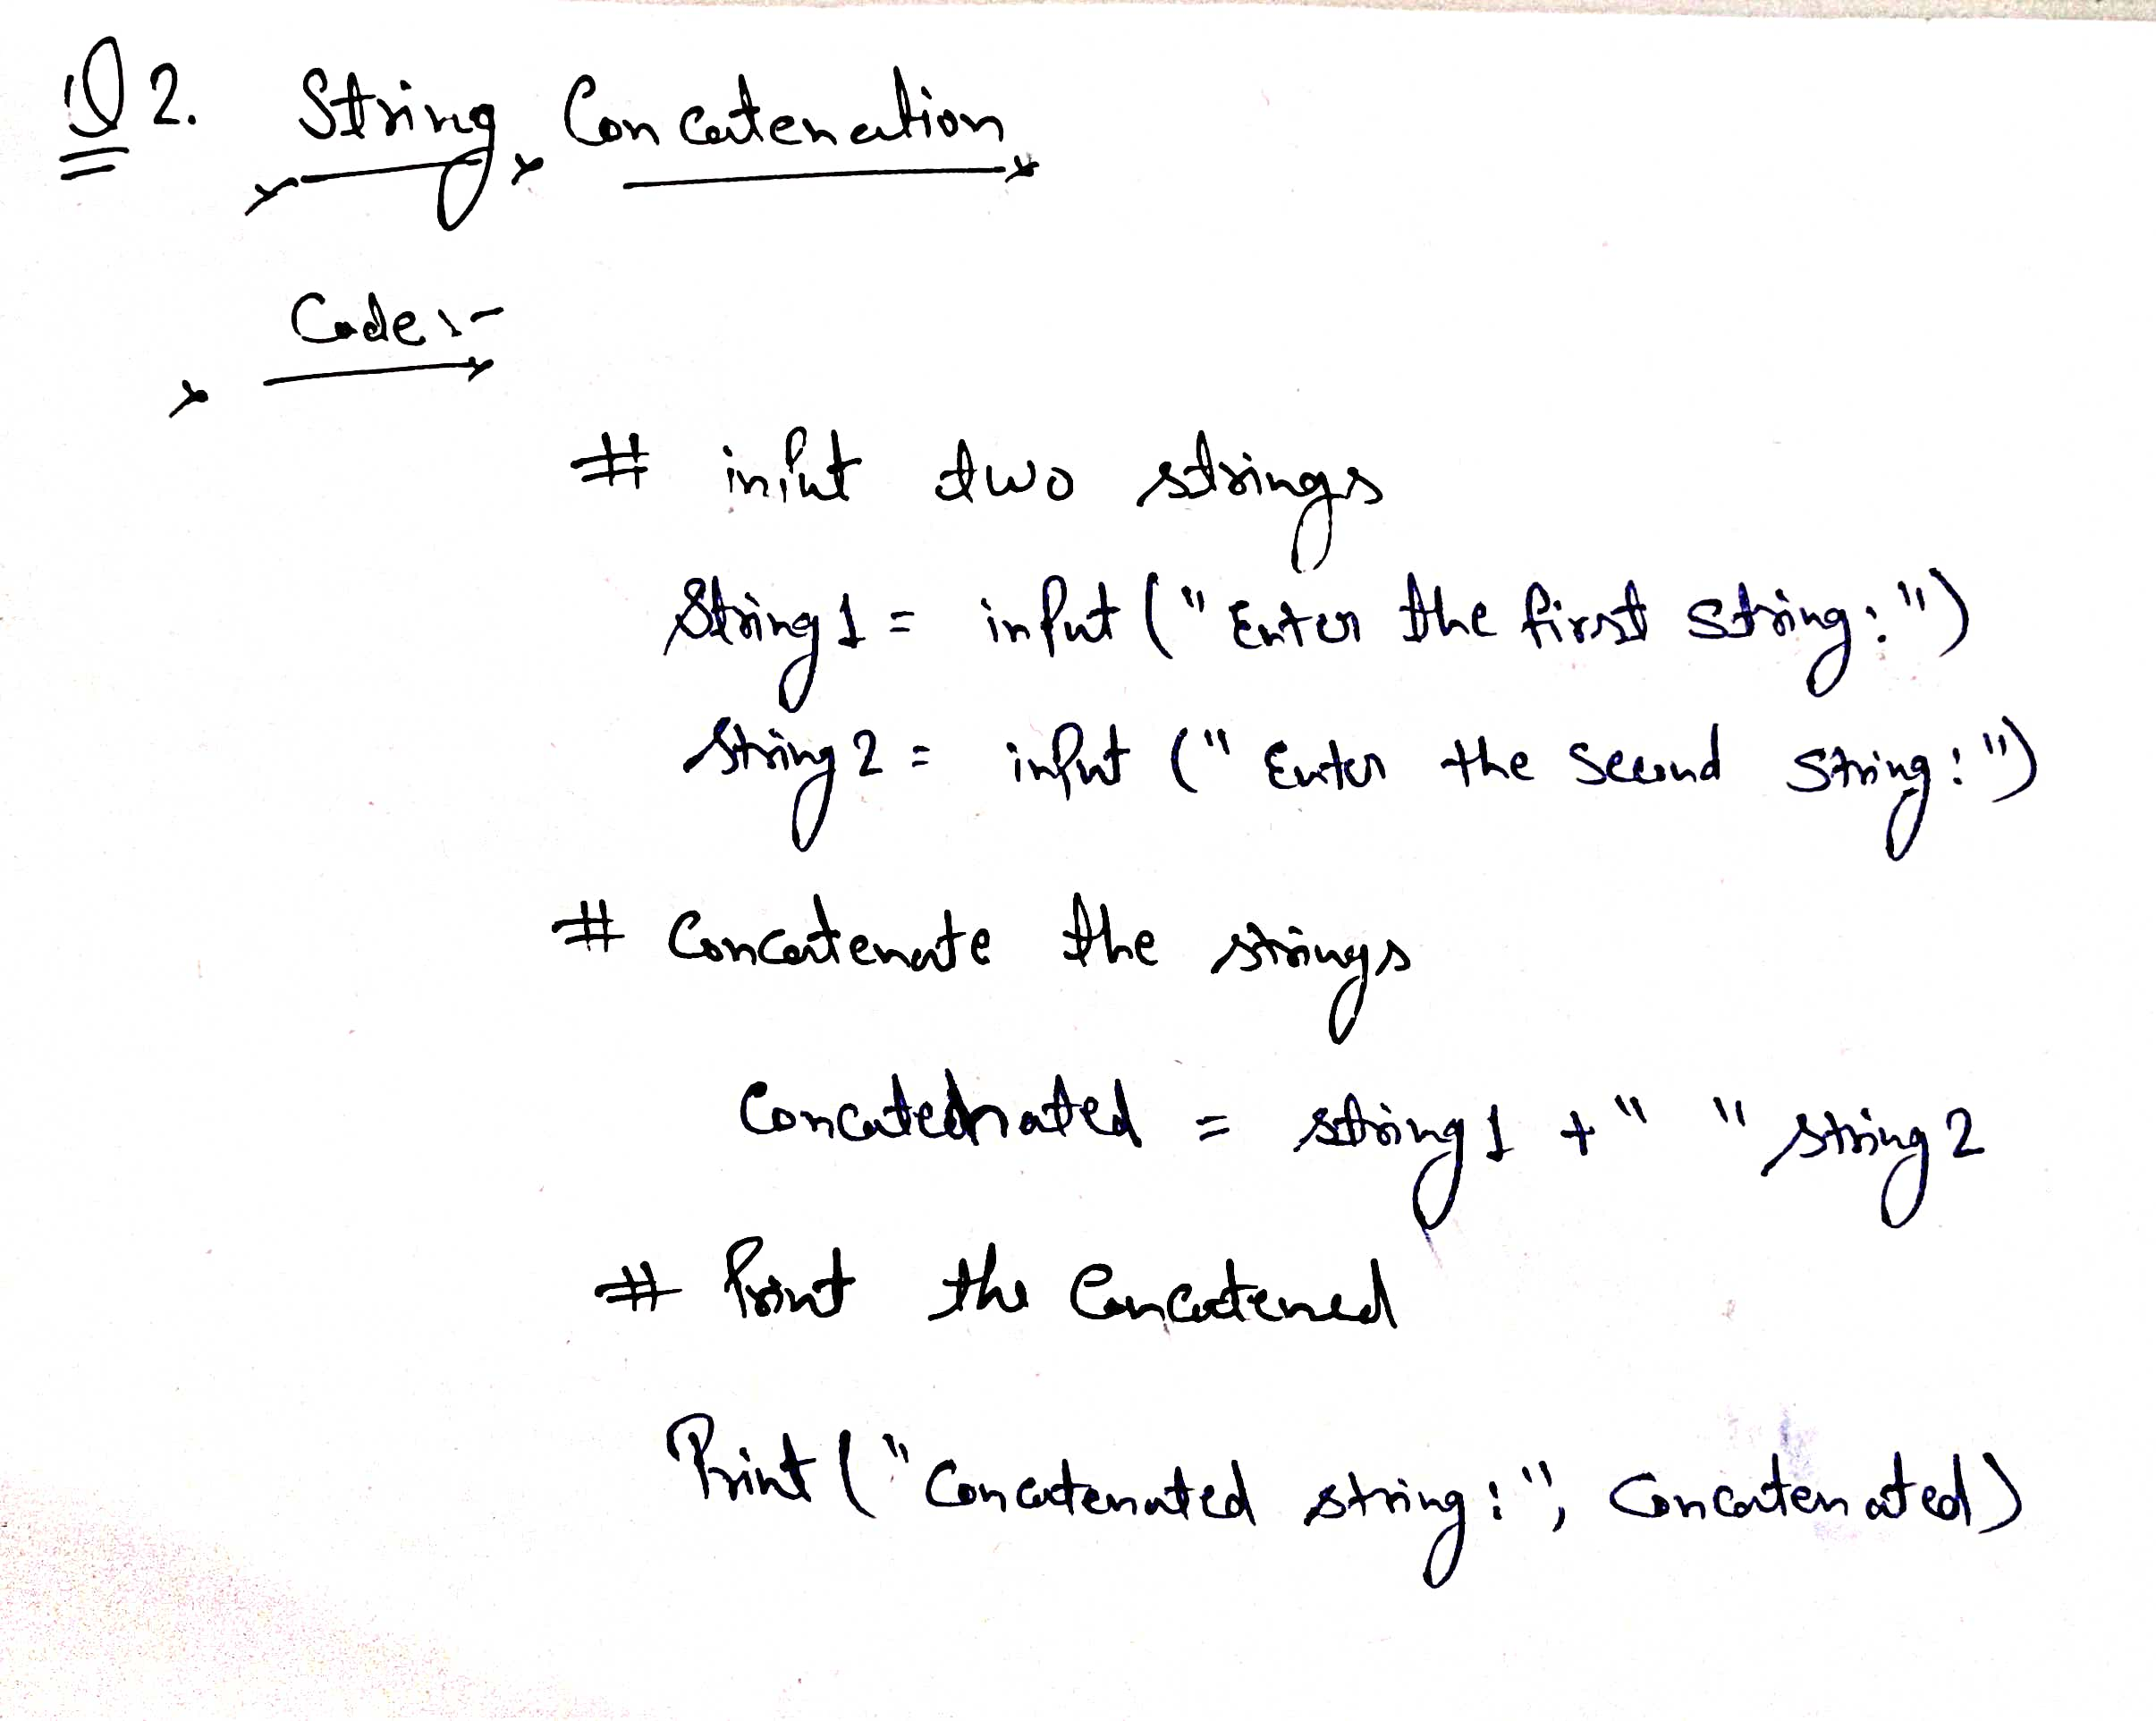 Q2. String Concatenation
Code:-
# input two strings
String1 = input ("Enter the first string:")
string2 = input ("Enter the second string:")
# Concatenate the strings
Concatenated = string1 + " " string2
# Print the Concatened
Print ("Concatenated string:", Concatenated)